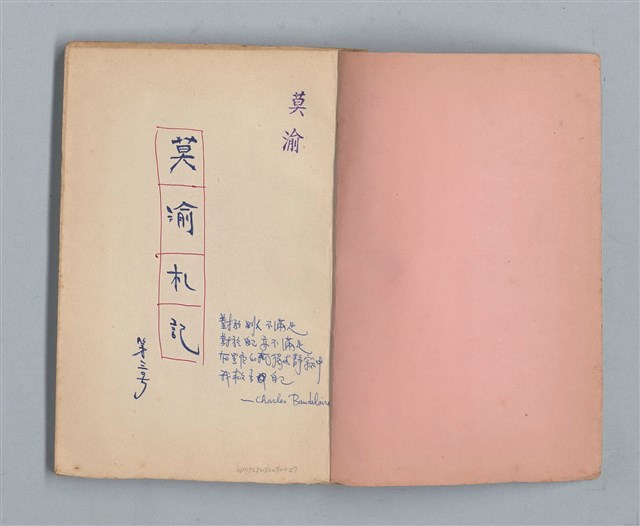 莫渝
莫渝札記
第三号
對於別人不滿足
對於自己亦不滿足
在黑夜的孤獨或靜寂中
我
自己
—Charles Baudelaire